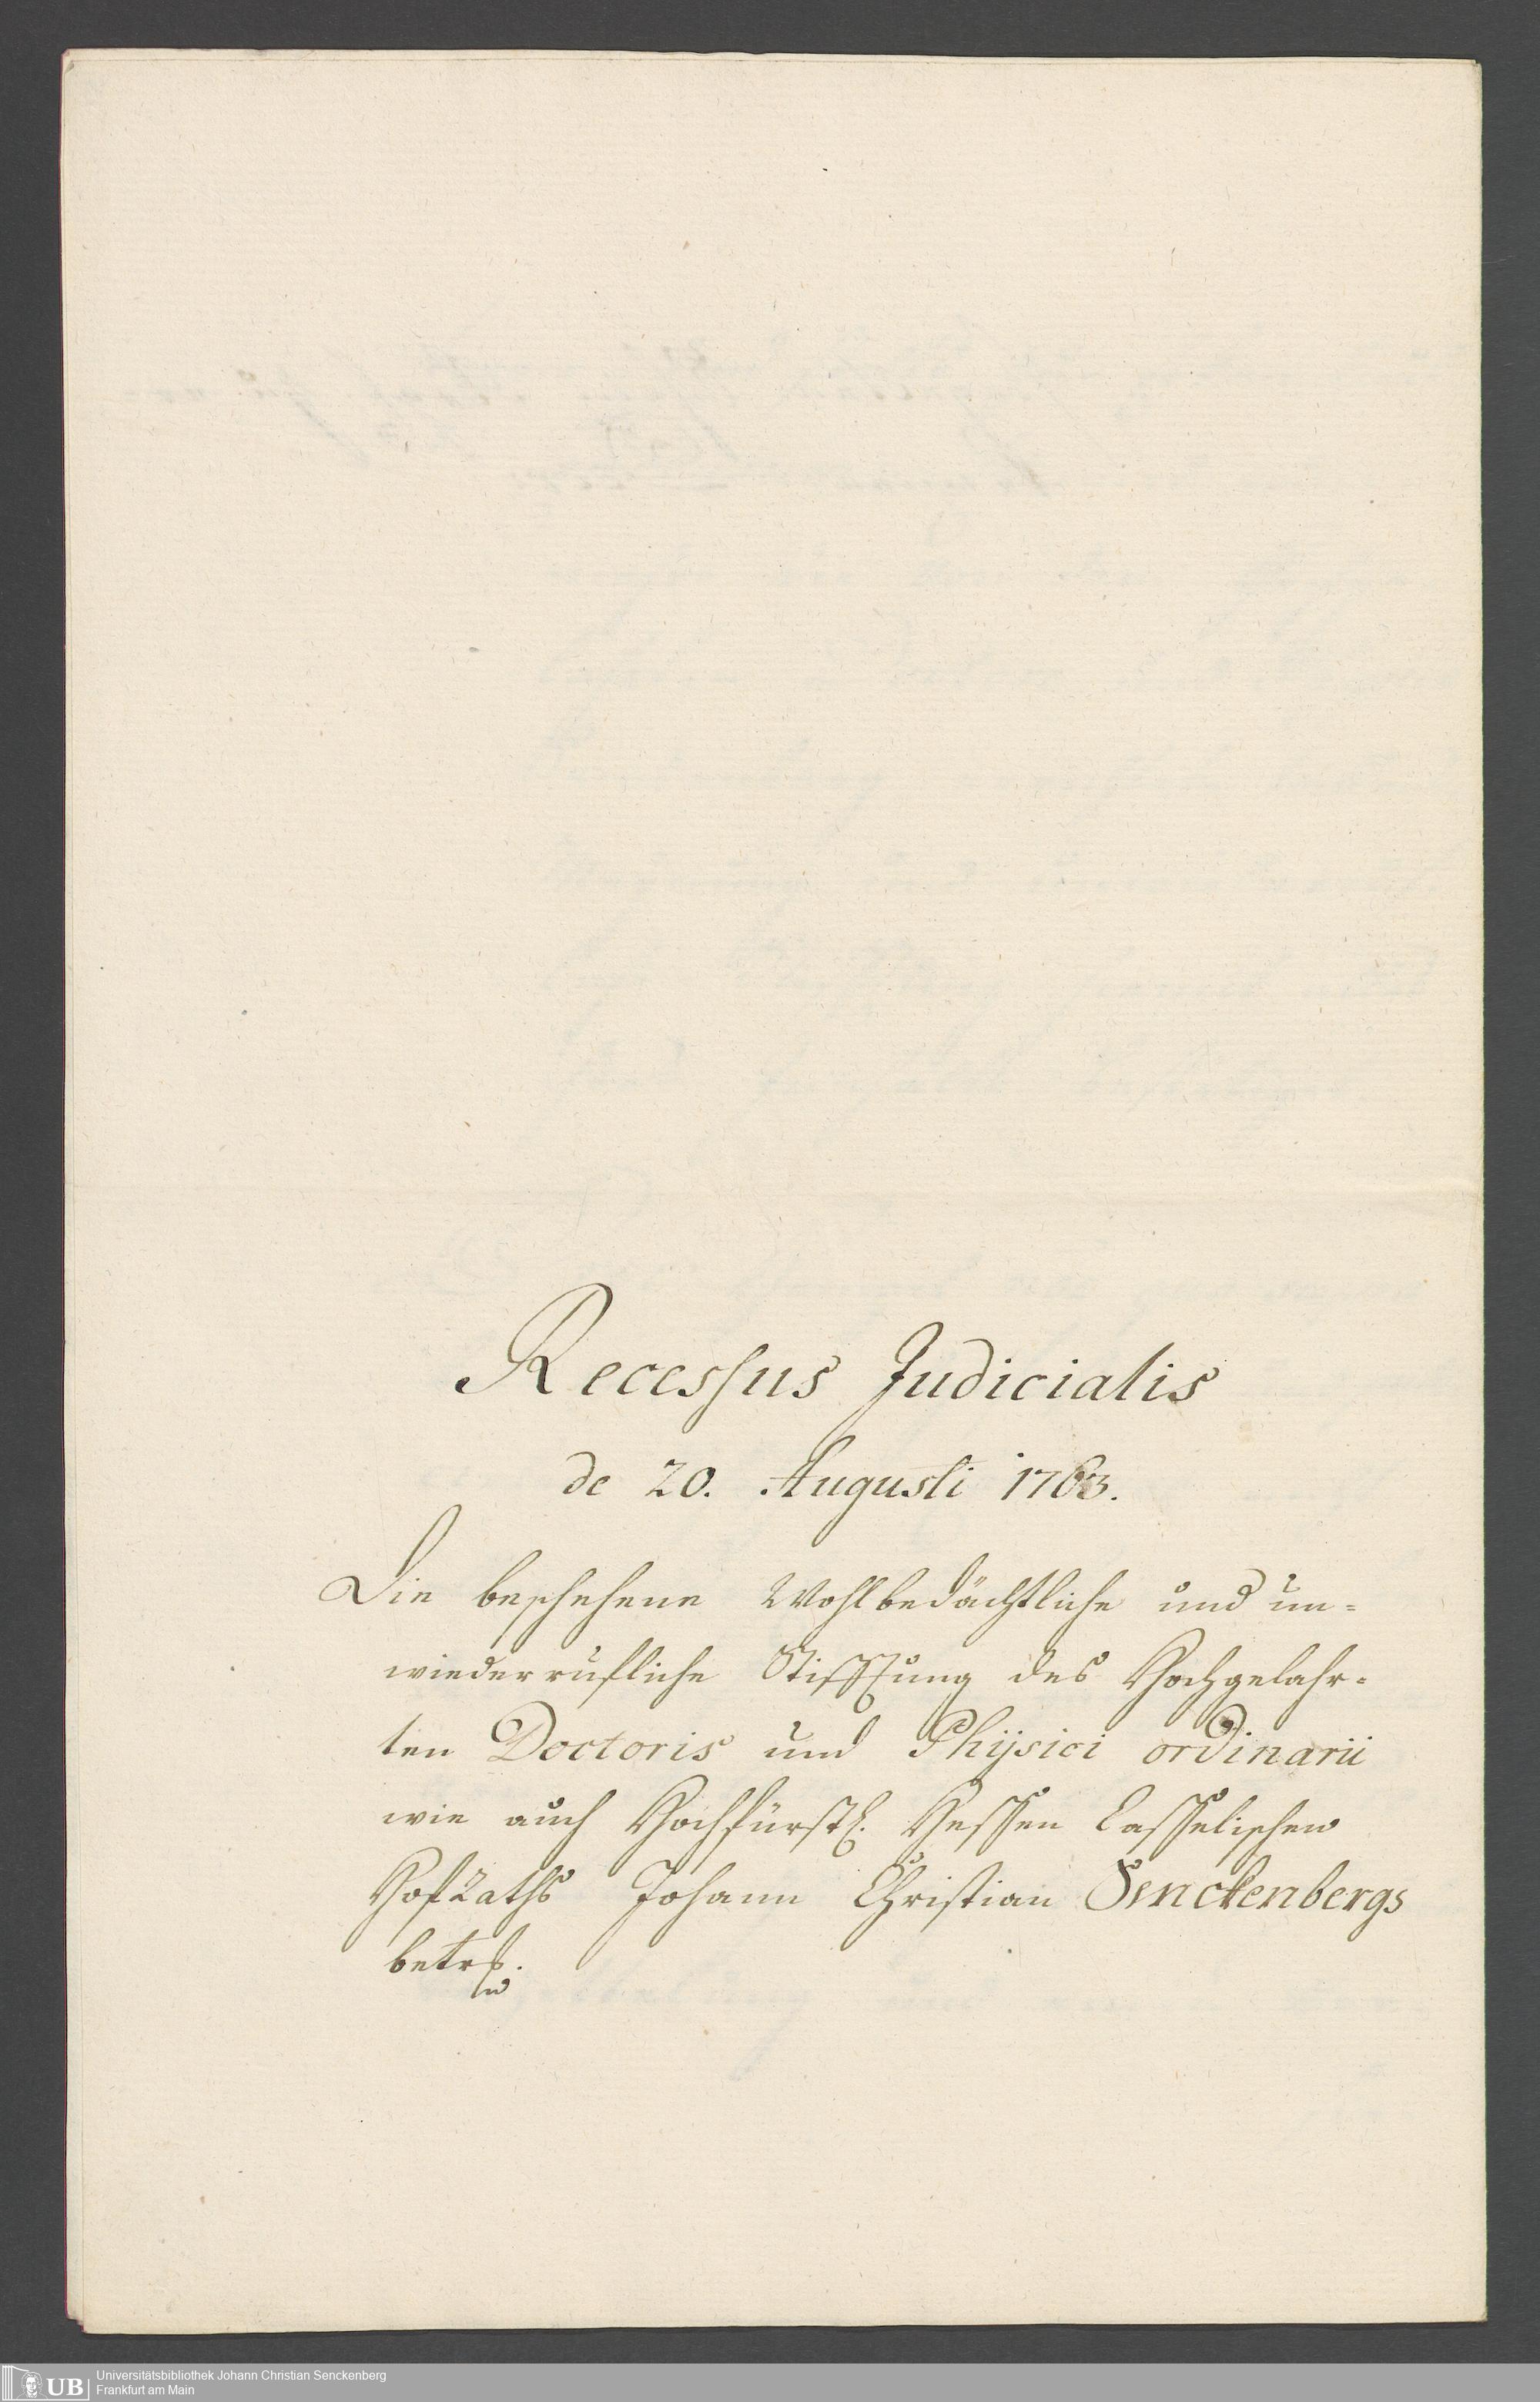 Recessus Judicialis
de 20. Augusti 1763.
Die beschehene Wohlbedächtliche und un-
wiederrufliche Stifftung des Hochgelahr-
ten Doctoris und Physici ordinarii
wie auch Hochfürstl. Hessen Casselischen
HofRaths Johann Christian Senckenbergs
betrf.
UB
Universitätsbibliothek Johann Christian Senckenberg
Frankfurt am Main